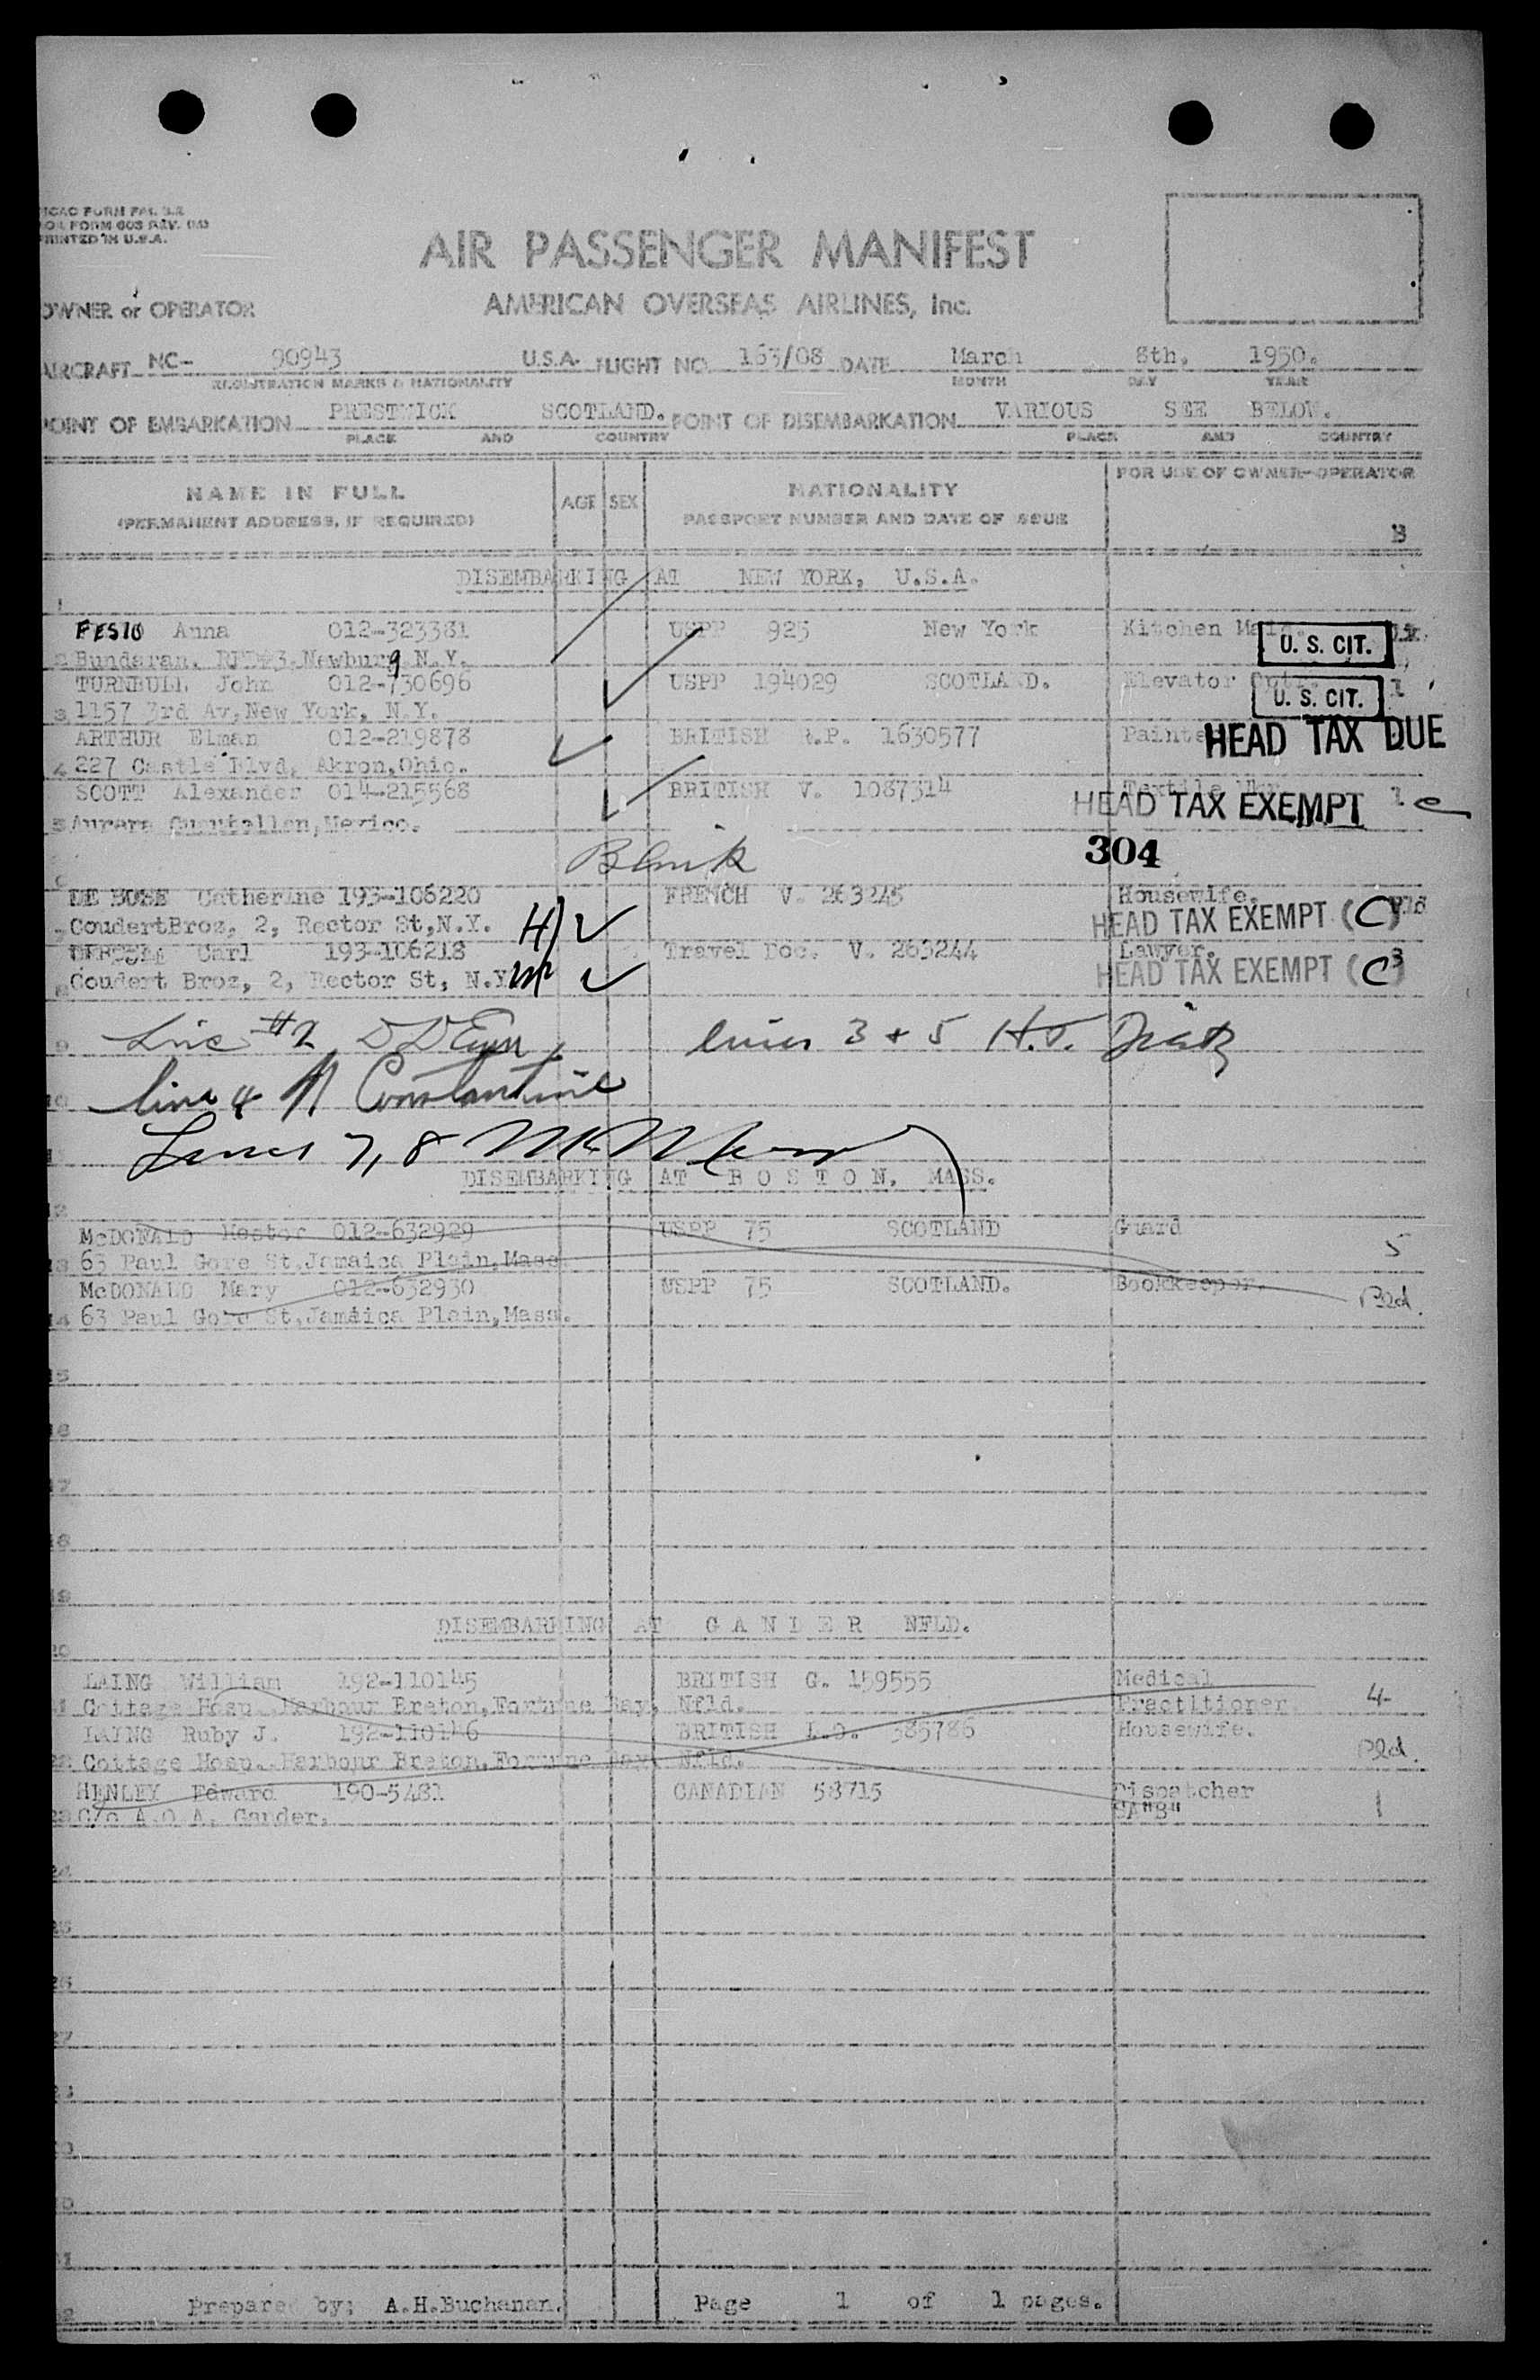 ICAO FORM
PRINTED IN U.S.A.
AIR PASSENGER MANIFEST
OWNER or OPERATOR AMERICAN OVERSEAS AIRLINES, Inc.
AIRCRAFT NC- 90943 U.S.A. FLIGHT NO. 163/08 DATE March 8th. 1950.
REGISTRATION MARKS & NATIONALITY MONTH DAY YEAR
POINT OF EMBARKATION PRESTWICK SCOTLAND. POINT OF DISEMBARKATION VARIOUS SEE BELOW.
PLACE AND COUNTRY PLACE AND COUNTRY
NAME IN FULL AGE SEX NATIONALITY FOR USE OF OWNER-OPERATOR
(PERMANENT ADDRESS, IF REQUIRED) PASSPORT NUMBER AND DATE OF ISSUE B
DISEMBARKING AT NEW YORK, U.S.A.
1
FESIO Anna 012-323381 USPP 925 New York Kitchen Maid.
2 Bundaran, RFD#3, Newburg N.Y. U. S. CIT.
TURNBULL John 012-730696 USPP 194029 SCOTLAND. Elevator 1
3 1157 3rd Av, New York, N.Y. U. S. CIT.
ARTHUR Elman 012-219878 BRITISH R.P. 1630577 Painter HEAD TAX DUE
4 227 Castle Blvd, Akron, Ohio.
SCOTT Alexander 014-215568 BRITISH V. 1087314 Textile 1
5 Aurera Mexico. HEAD TAX EXEMPT c
Blank 304
DE BOSE Catherine 193-106220 FRENCH V. 263245 Housewife.
7 CoudertBroz, 2, Rector St, N.Y. H HEAD TAX EXEMPT (C)
Carl 193-106218 Travel Doc. V. 263244 Lawyer.
8 Coudert Broz, 2, Rector St, N.Y. M HEAD TAX EXEMPT (C) 3
9 Line #2 lines 3 + 5 H.T.
10 line 4 Constantine
Lines 7, 8
DISEMBARKING AT B O S T O N, MASS.
12
McDONALD Hester 012-632929 USPP 75 SCOTLAND Guard
13 63 Paul Gore St, Jamaica Plain, Mass 5
McDONALD Mary 012-632930 USPP 75 SCOTLAND. Bookkeeper.
14 63 Paul Gore St, Jamaica Plain, Mass. Bld.
15
16
17
18
19
DISEMBARKING AT G A N D E R NFLD.
20
LAING William 192-110145 BRITISH G. 159555 Medical
21 Cottage Hosp. Harbour Breton, Fortune Bay, Nfld. Practitioner 4
LAING Ruby J. 192-110146 BRITISH L.O. 385786 Housewife.
22 Cottage Hosp. Harbour Breton, Fortune Bay Nfld. Bld.
HENLEY Edward 190-5481 CANADIAN 58715 Dispatcher
23 C/o A.O.A. Gander. SA"B" 1
24
25
26
27
28
29
30
31
32 Prepared by; A.H.Buchanan. Page 1 of 1 pages.